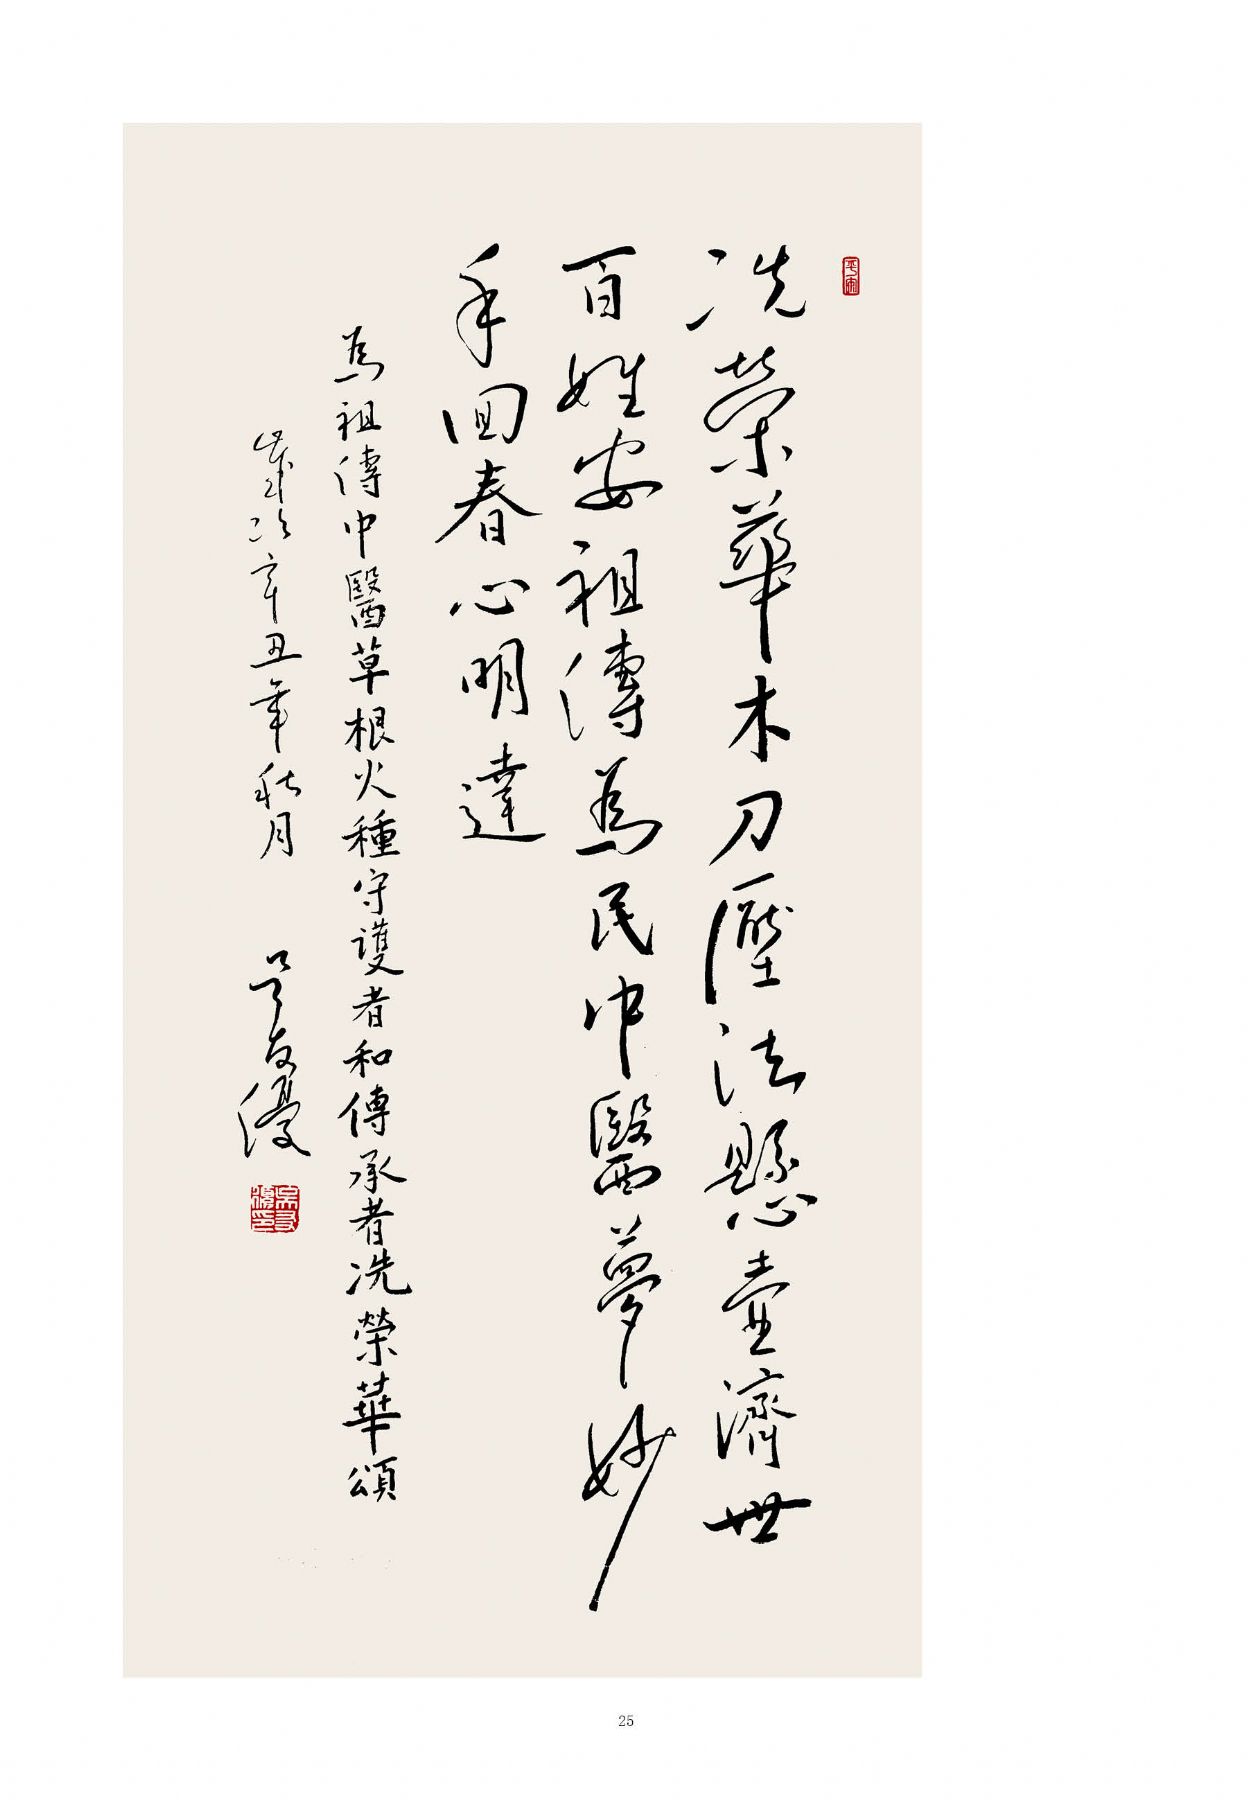 冼榮華木刀壓法懸壺濟世
百姓安祖傳為民中醫夢妙
手回春心明達
為祖傳中醫草根火種守護者和傳承者冼榮華頌
歲次辛丑年秋月 吳友優
吳友優印
25